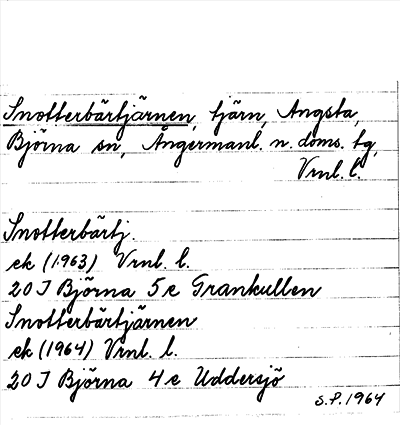 Snotterbärtjärnen, tjärn, Angsta,
Björna sn, Ångermanl. n. doms. tg,
Vrnl. l.
Snotterbärtj.
ek (1963) Vrnl. l.
20 J Björna 5 e Grankullen
Snotterbärtjärnen
ek (1964) Vrnl. l.
20 J Björna 4 e Uddersjö
S.P. 1964